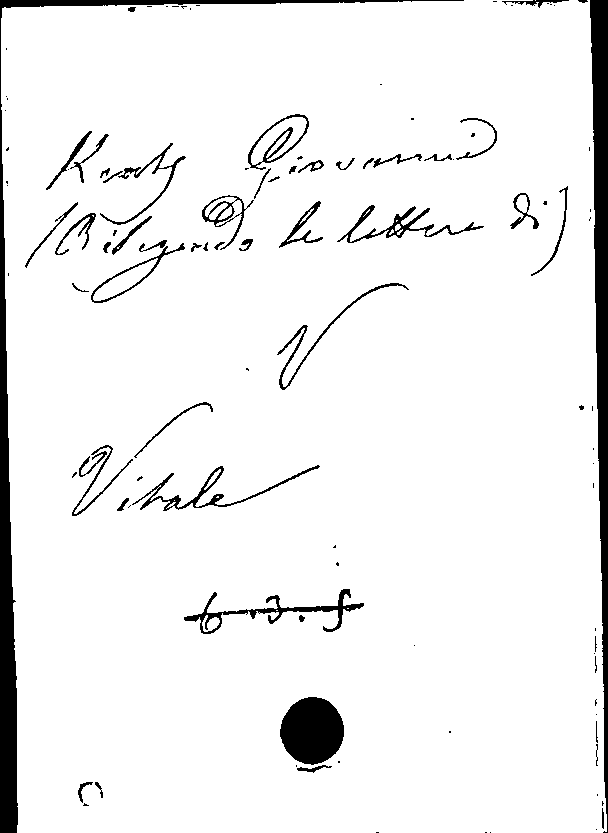 Keats Giovanni
(Rilegendo le lettere di)
V
Vitale
6.3.5